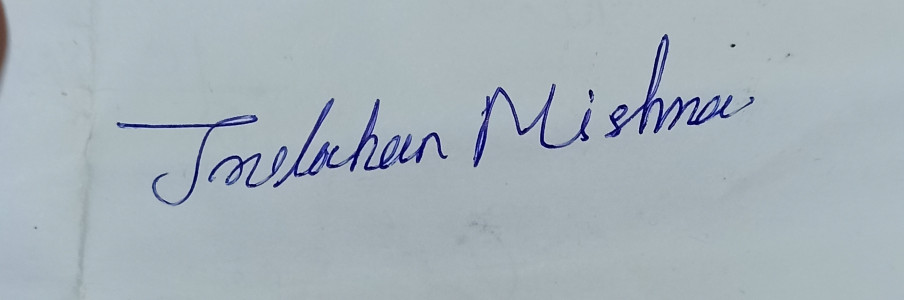 Trelochan Mishra